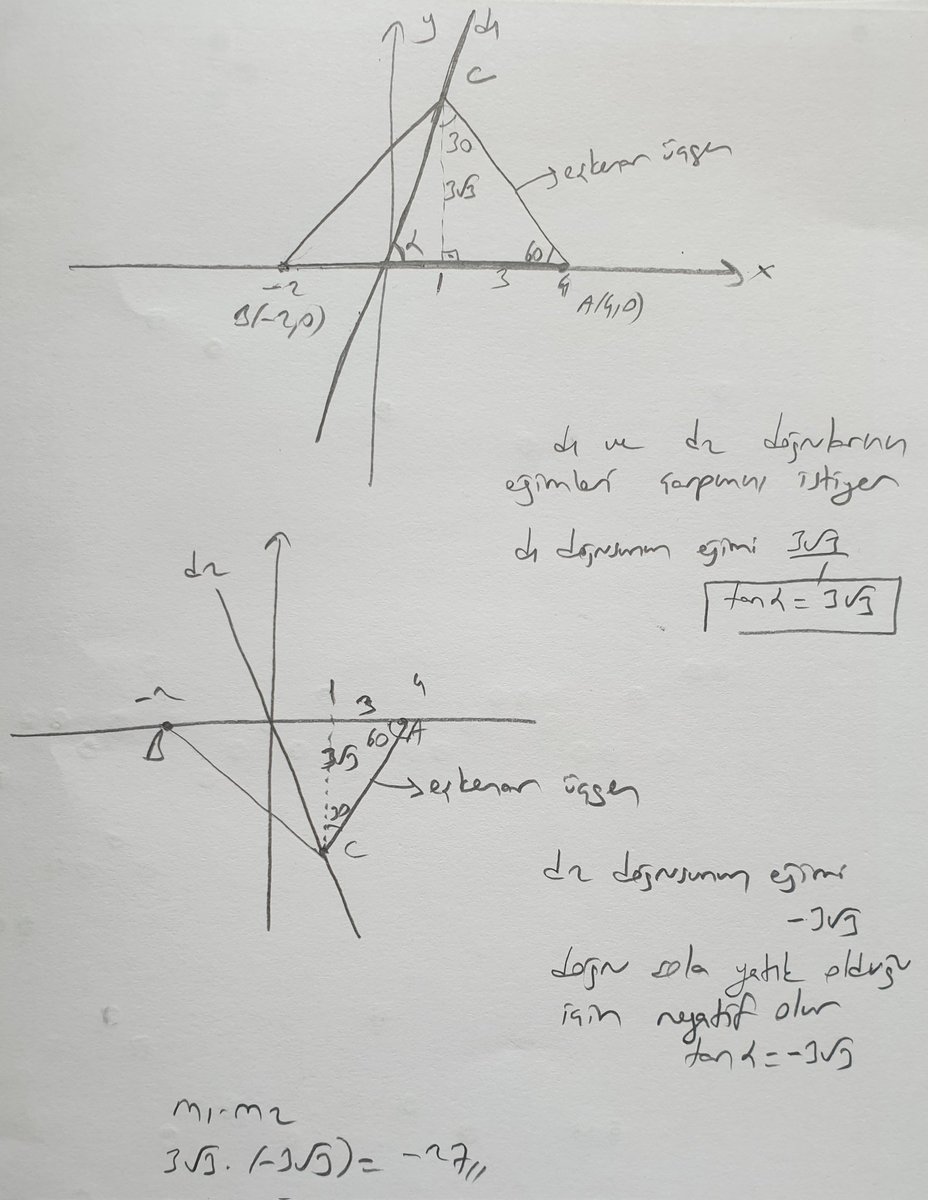 y
d1
C
30
3√3
eşkenar üçgen
α
60
x
-2
1
3
4
B(-2,0)
A(4,0)
d1 ve d2 doğrularının
eğimleri çarpımını istiyor
d1 doğrusunun eğimi 3√3/1
tanα = 3√3
d2
-2
1
3
4
B
60
A
3√3
eşkenar üçgen
30
C
d2 doğrusunun eğimi
-3√3
doğru sola yatık olduğu
için negatif olur
tanα = -3√3
m1.m2
3√3.(-3√3) = -27,,